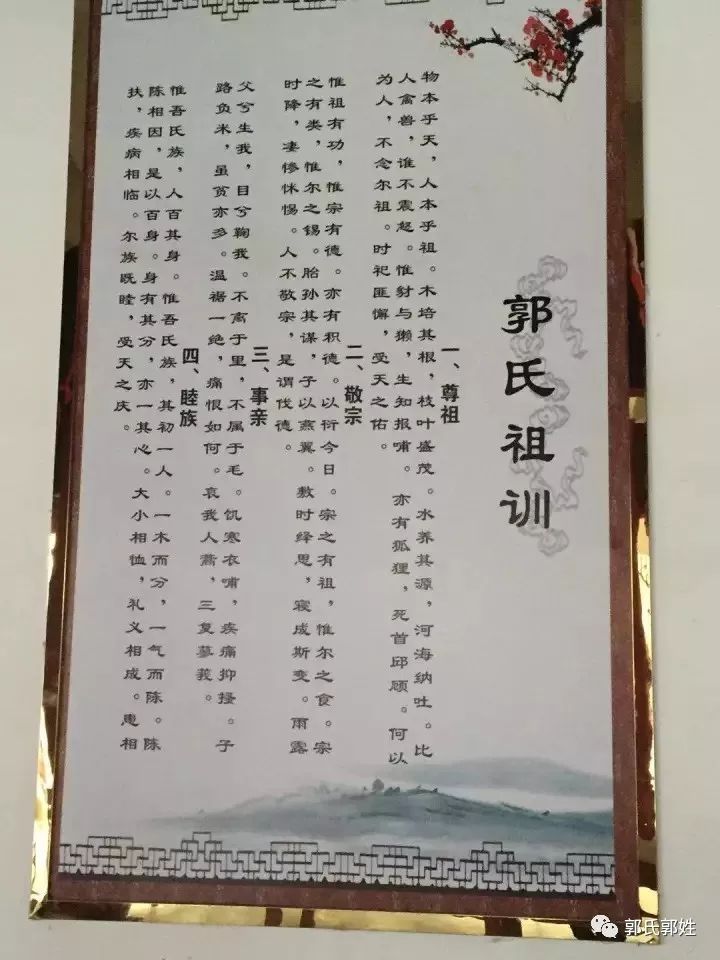 郭氏祖训
一、尊祖
物本乎天，人本乎祖。木培其根，枝叶盛茂。水养其源，河海纳吐。比
人禽兽，谁不震起。惟豺与獭，生知报哺。亦有狐狸，死首邱顾。何以
为人，不念尔祖。时祀匪懈，受天之佑。
二、敬宗
惟祖有功，惟宗有德。亦有积德。以衍今日。宗之有祖，惟尔之食。宗
之有类，惟尔之锡。胎孙其谋，子以燕翼。敖时绎思，寝成斯变。雨露
时降，凄惨怵惕。人不敬宗，是谓伐德。
三、事亲
父兮生我，目兮鞠我。不离于里，不属于毛。饥寒衣哺，疾痛抑搔。子
路负米，虽贫亦多。温裾一绝，痛恨如何。哀我人斋，三复蓼莪。
四、睦族
惟吾氏族，人百其身。惟吾氏族，其初一人。一木而分，一气而陈。陈
陈相因，是以百身。身有其分，亦一其心。大小相恤，礼义相成。患相
扶，疾病相临。尔族既睦，受天之庆。
郭氏郭姓